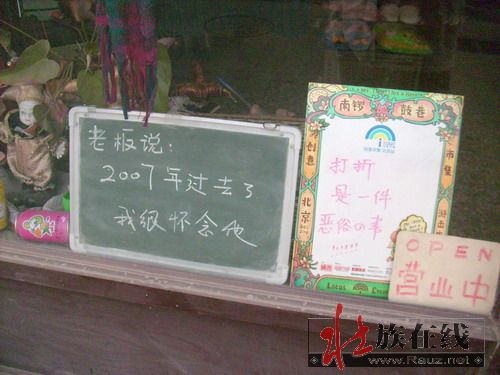 老板说：
2007年过去了
我很怀念他
南锣
鼓巷
创意
市集
北京
打折
是一件
恶俗の事
!!!!!!!
Locus
OPEN
营业中
壮族在线
www.Rauz.net